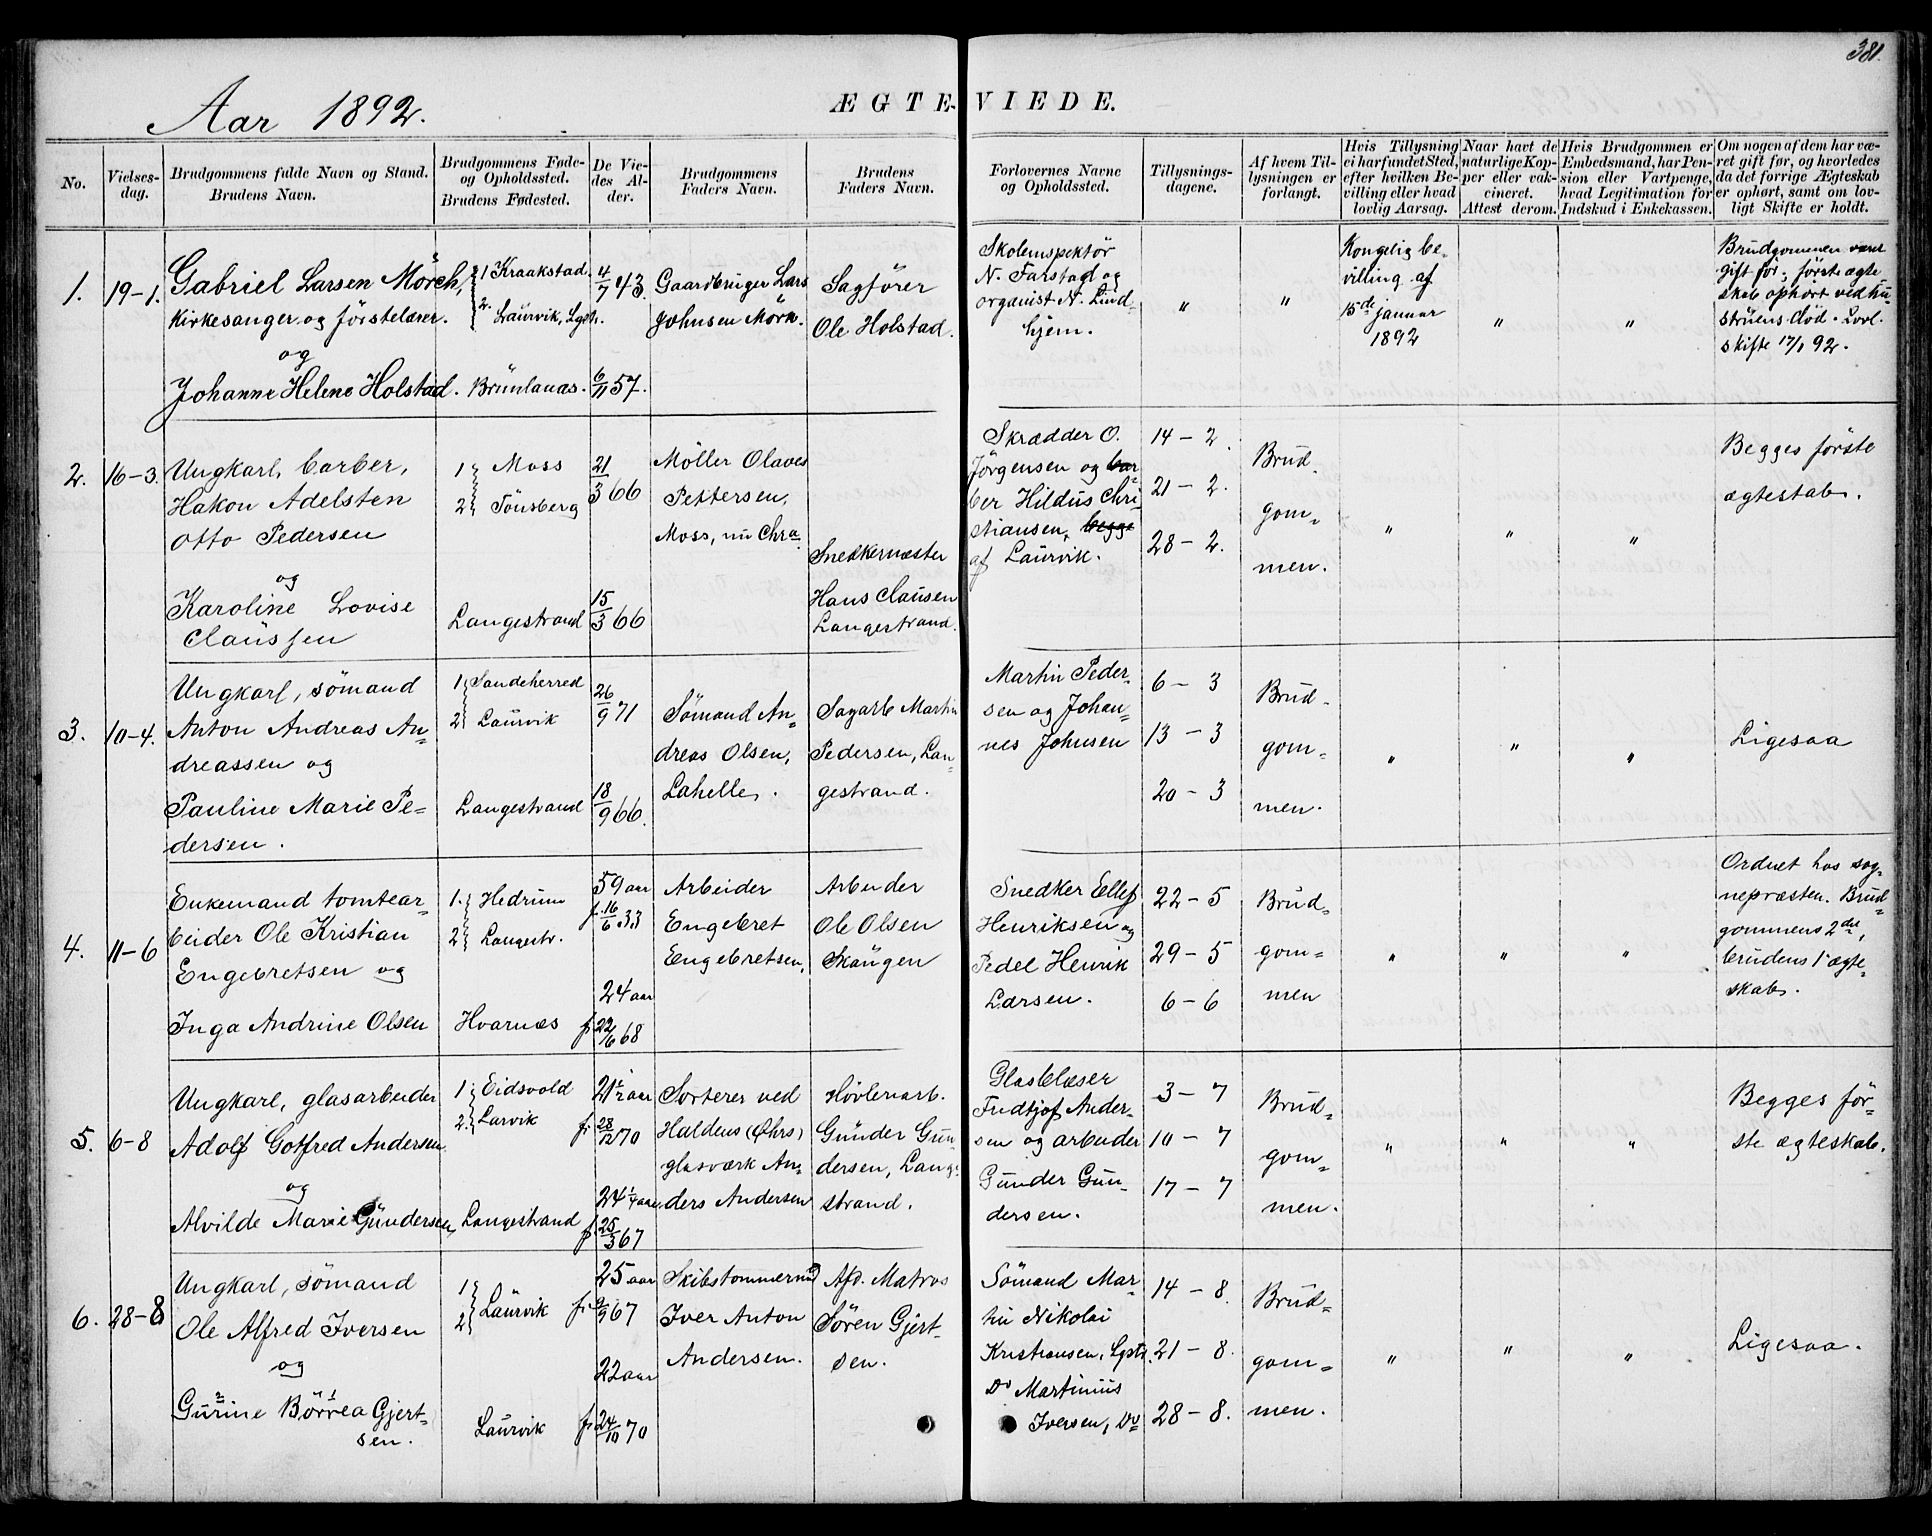 381.
Aar 1892.
ÆGTE-VIEDE.
No.
Vielses-
dag.
Brudgommens fulde Navn og Stand.
Brudens Navn.
Brudgommens Føde-
og Opholdssted.
Brudens Fødested.
De Vie-
des Al-
der.
Brudgommens
Faders Navn.
Brudens
Faders Navn.
Forlovernes Navne
og Opholdssted.
Tillysnings-
dagene.
Af hvem Til-
lysningen er
forlangt.
Hvis Tillysning
ei har fundet Sted,
efter hvilken Be-
villing eller hvad
lovlig Aarsag.
Naar havt de
naturlige Kop-
per eller vak-
cineret.
Attest derom.
Hvis Brudgommen er
Embedsmand, har Pen-
sion eller Vartpenge,
hvad Legitimation for
Indskud i Enkekassen.
Om nogen af dem har væ-
ret gift før, og hvorledes
da det forrige Ægteskab
er ophørt, samt om lov-
ligt Skifte er holdt.
1.
19-1.
Gabriel Larsen Mörch,
Kirkesanger og förstelærer.
og
Johanne Helene Holstad.
1 Kraakstad.
2. Laurvik, Lgstr.
Brunlanæs.
4/7 43.
6/11 57.
Gaardbruger Lars
Johnsen Mörk.
Sagförer
Ole Holstad.
Skoleinspektör
N. Farstad og
organist N. Lind-
hjem.
"
"
Kongelig be-
villing af
15de januar
1892
"
"
Brudgommen været
gift før; første ægte-
skab ophørt ved hu-
struens død. Lovl.
skifte 17/1 92.
2.
16-3.
Ungkarl, barber,
Hakon Adelsten
Otto Pedersen
og
Karoline Lovise
Claussen
1 Moss
2 Tönsberg
Langestrand
21/3 66
15/3 66
Möller Olaves
Pettersen,
Moss, nu Chra.
Snedkermester
Hans Clausen
Langestrand.
Skrædder O.
Jörgensen og bar
ber Hildus Chri-
stiansen, begge
af Laurvik.
14-2.
21-2.
28-2.
Brud-
gom-
men.
"
"
"
Begges første
ægteskab.
3.
10-4.
Ungkarl, sömand
Anton Andreas An-
dreassen og
Pauline Marie Pe-
dersen.
1 Sandeherred
2 Laurvik
Langestrand
26/9 71
18/9 66.
Sömand An-
dreas Olsen,
Lahelle.
Sagarb Martin
Pedersen, Lan-
gestrand.
Martin Peder-
sen og Johan-
nes Johnsen
6-3
13-3
20-3
Brud-
gom-
men.
"
"
"
Ligesaa
4.
11-6
Enkemand tomtear-
beider Ole Kristian
Engebretsen og
Inga Andrine Olsen
1. Hedrum
2 Langestr.
Hvarnæs
59 aar
f. 16/6 33
24 aar
f 22/6 68
Arbeider
Engebret
Engebretsen,
Arbeider
Ole Olsen
Skaugen
Snedker Ellef
Henriksen og
Pedel Henrik
Larsen.
22-5
29-5
6-6
Brud-
gom-
men
"
"
"
Ordnet hos sog-
nepræsten. Brud-
gommens 2det,
brudens 1ste ægte-
skab.
5.
6-8
Ungkarl, glasarbeider
Adolf Gotfred Andersen
og
Alvilde Marie Gundersen,
1. Eidsvold
2. Larvik
Langestrand
21 1/2 aar
f. 28/12 70
24 1/4 aar.
f. 25/3 67
Sorterer ved
Haldens (Øhrs)
glasværk An-
ders Andersen
Høvleriarb.
Gunder Gun-
dersen, Lange-
strand.
Glasblæser
Fridtjof Ander-
sen og arbeider
Gunder Gun-
dersen.
3-7
10-7
17-7
Brud-
gom-
men.
"
"
"
Begges før-
ste ægteskab.
6.
28-8
Ungkarl, sömand
Ole Alfred Iversen
og
Gurine Börrea Gjert-
sen.
1
2 Laurvik
Laurvik
25 aar
f. 2/9 67
22 aar
f. 24/10 70
Skibstømmermd
Iver Anton
Andersen.
Afd. Matros
Sören Gjert-
sen.
Sömand Mar-
tin Nikolai
Kristiansen, Lgstr.
Do Martinius
Iversen, Do
14-8.
21-8.
28-8.
Brud-
gom-
men.
"
"
"
Ligesaa.